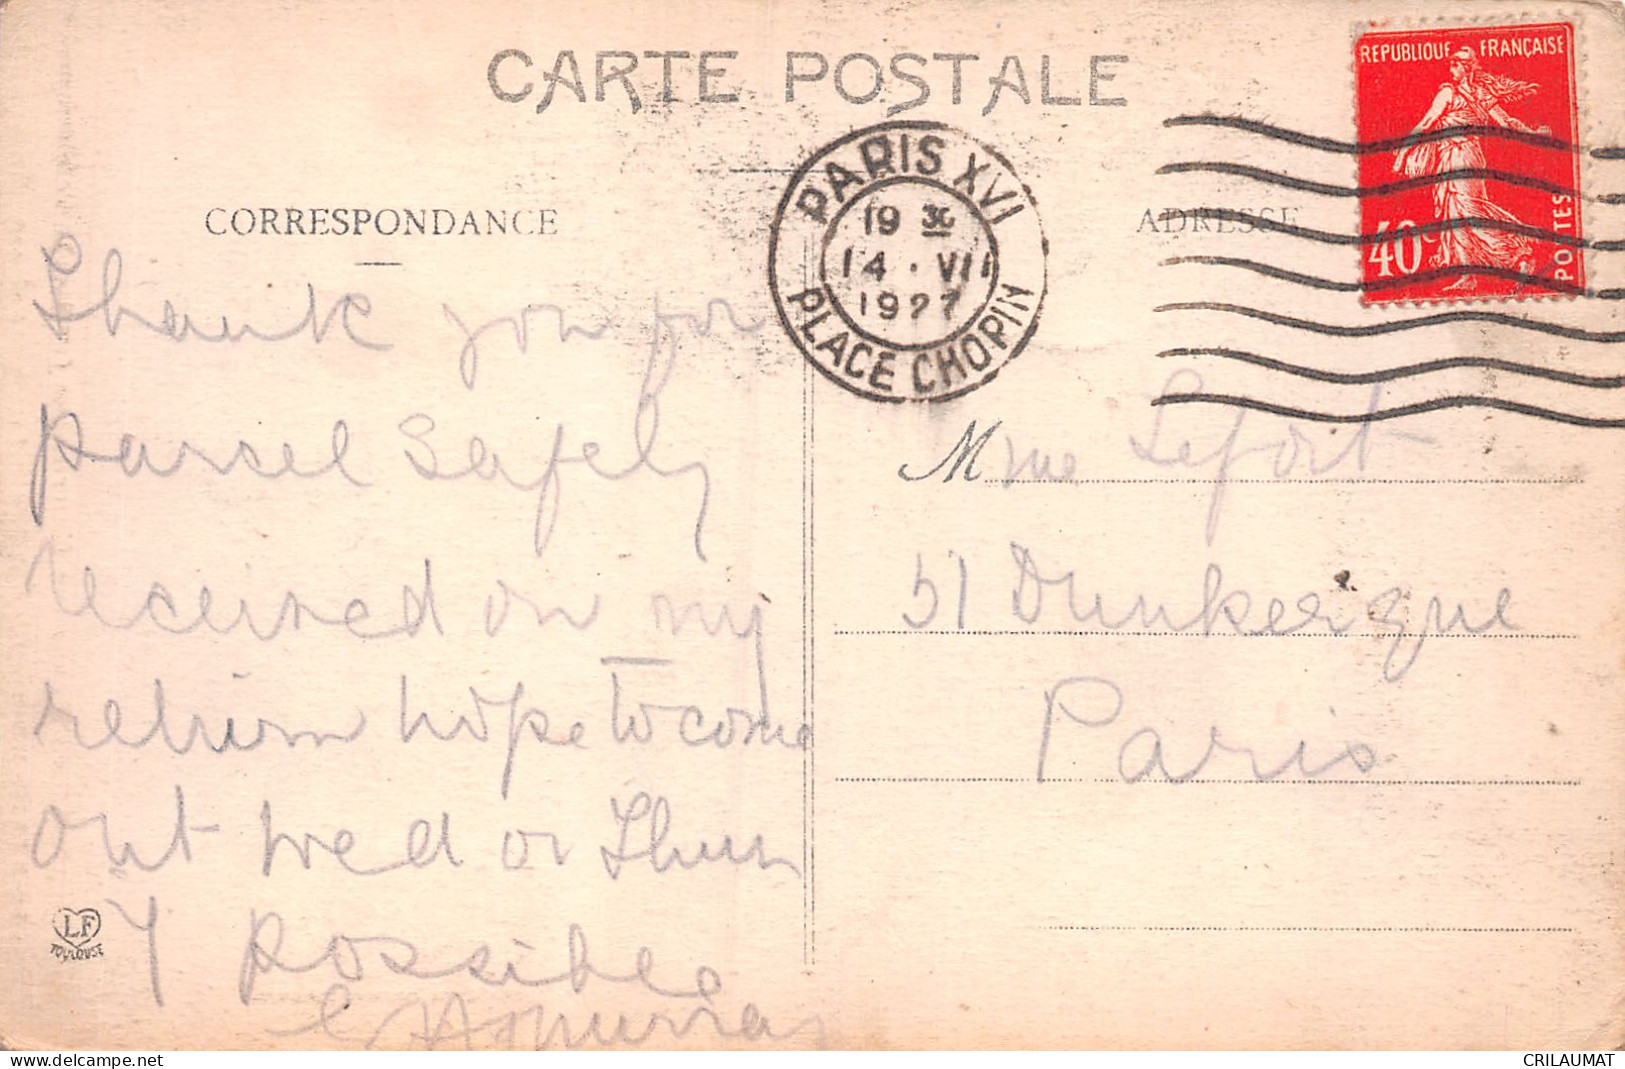 CARTE POSTALE
REPUBLIQUE FRANÇAISE
40c
POSTES
PARIS XVI
19 30
14 · VII
1927
PLACE CHOPIN
CORRESPONDANCE
ADRESSE
Thank you for
parcel safely
received on my
return hope to come
out wed or Thur
if possible
Murray
Mme Lefort
51 Dunkerque
Paris
LF
TOULOUSE
delcampe.net
CRILAUMAT